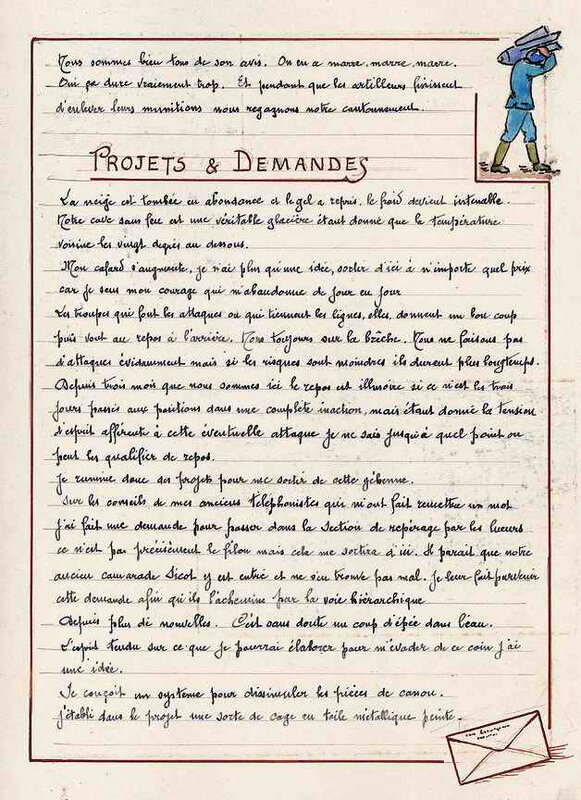 Nous sommes bien tous de son avis. On en a marre, marre, marre.
Oui ça dure vraiement trop. Et pendant que les artilleurs finissent
d'enlever leurs munitions nous regagnons notre cantonnement.
PROJETS & DEMANDES
La neige est tombée en abondance et le gel a repris, le froid devient intenable.
Notre cave sans feu est une véritable glacière étant donné que la température
voisine les vingt degrés au dessous.
Mon cafard s'augmente, je n'ai plus qu'une idée, sortir d'ici à n'importe quel prix
car je sens mon courage qui m'abandonne de jour en jour
Les troupes qui font les attaques ou qui tiennent les lignes, elles, donnent un bon coup
puis vont au repos à l'arrière. Nous toujours sur la brèche. Nous ne faisons pas
d'attaques évidamment mais si les risques sont moindres ils durent plus longtemps.
Depuis trois mois que nous sommes ici le repos est illusoire si ce n'est les trois
jours passés aux positions dans une complète inaction, mais étant donné la tension
d'esprit afférente à cette éventuelle attaque je ne sais jusqu'à quel point on
peut les qualifier de repos.
Je rumine donc ses projets pour me sortir de cette géhenne.
Sur les conseils de mes anciens téléphonistes qui m'ont fait remettre un mot
j'ai fait une demande pour passer dans la section de repérage par les lueurs
ce n'est pas précisément le filon mais cela me sortira d'ici. Il parait que notre
ancien camarade Sicot y est entré et ne s'en trouve pas mal. Je leur fait parvenir
cette demande afin qu'ils l'achemine par la voie hiérarchique
Depuis plus de nouvelles. C'est sans doute un coup d'épée dans l'eau.
L'esprit tendu sur ce que je pourrai élaborer pour m'évader de ce coin j'ai
une idée.
Je conçoit un système pour dissimuler les pièces de canon.
j'établi dans le projet une sorte de cage en toile métallique peinte.